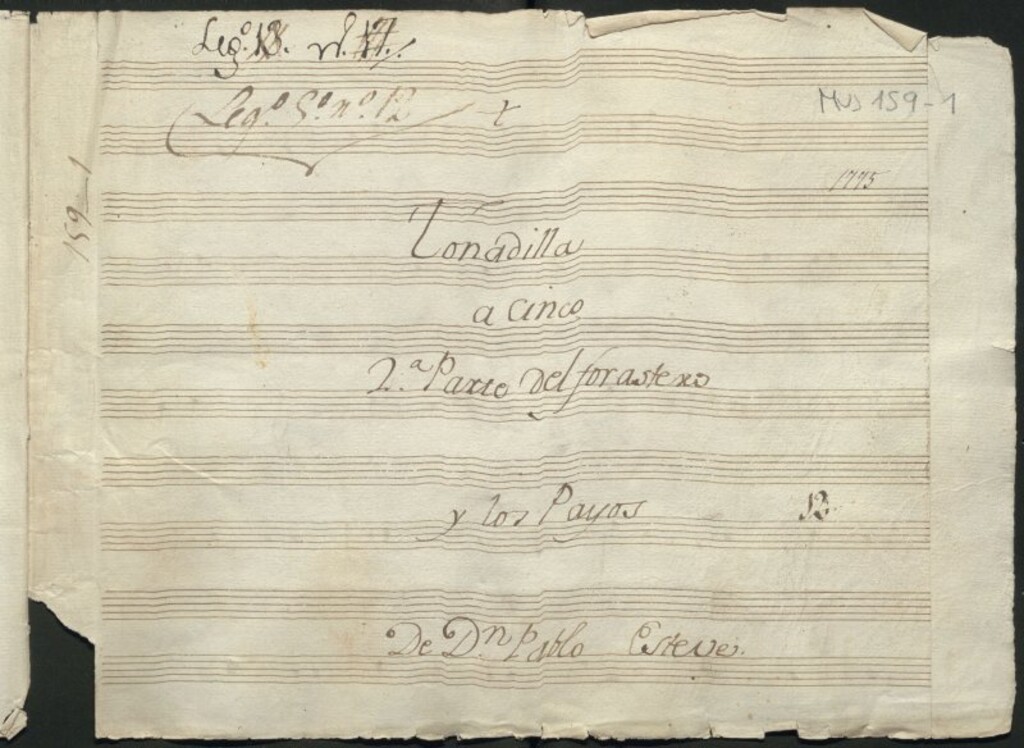 Leg.º 18. nº. 17.
Leg.º 5.º n.º 12
t
MUS 159-1
1775
159-1
Tonadilla
a cinco
2.ª Parte del forastero
y los Payos
12.
De D.n Pablo Esteve.